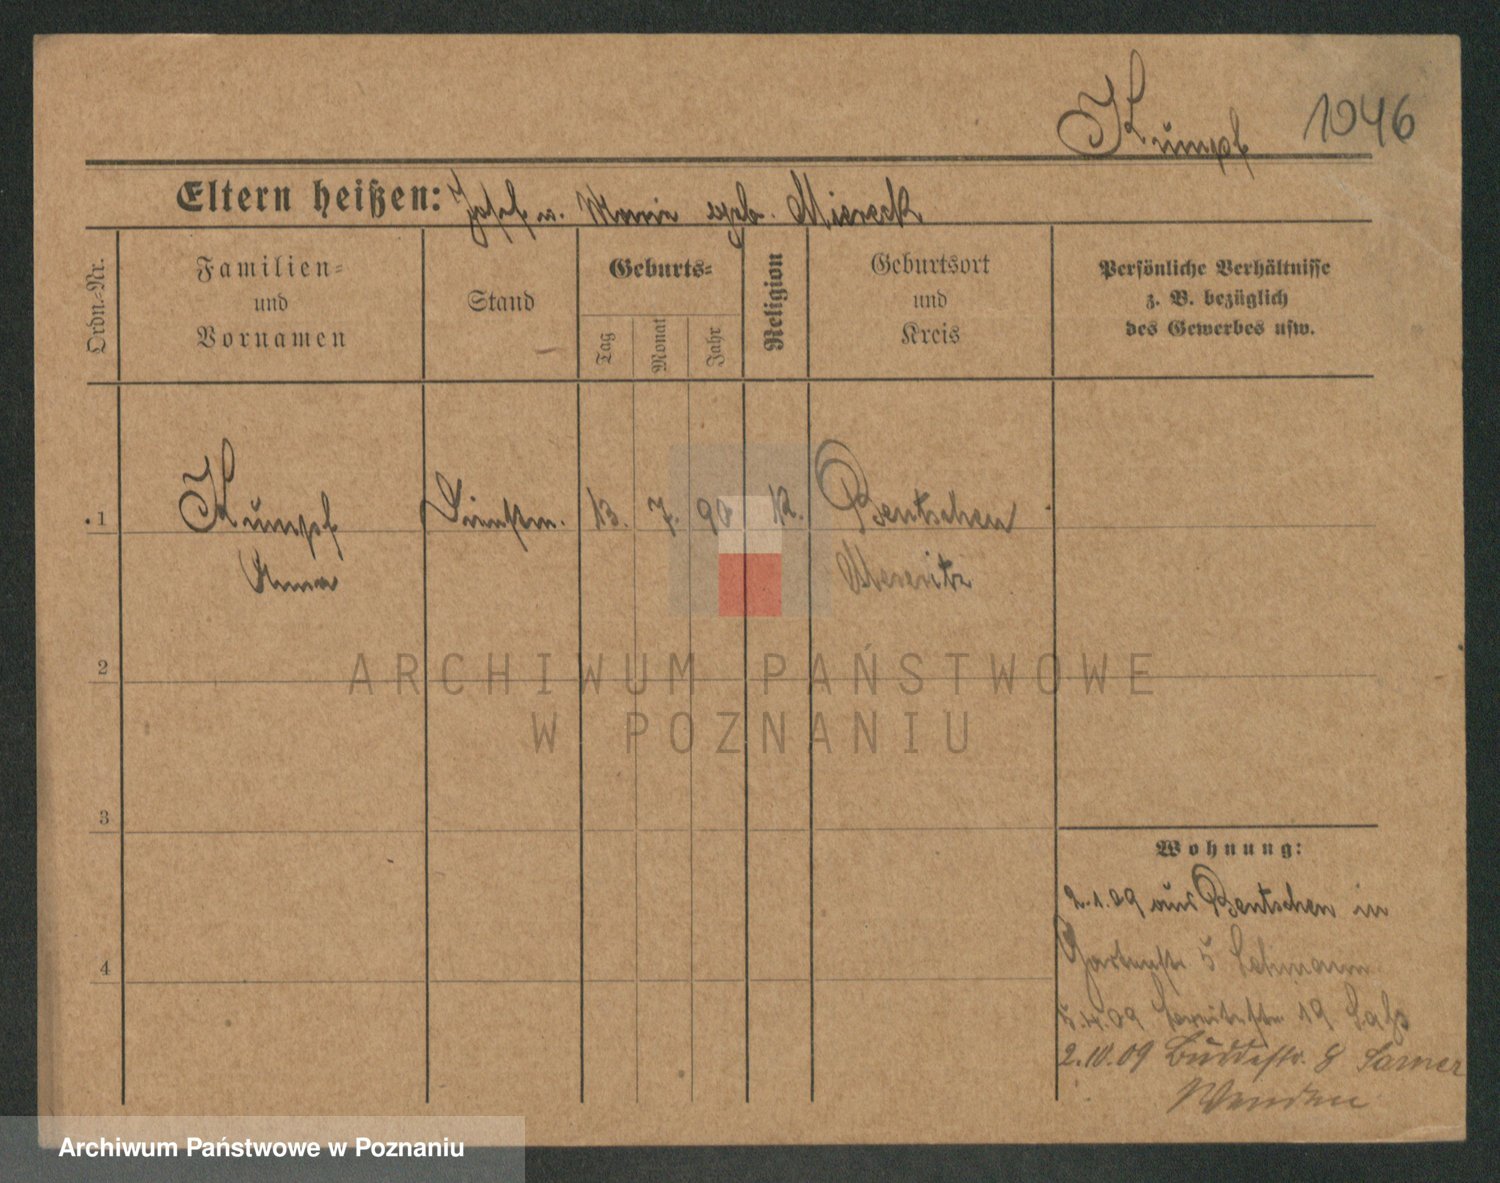 Kumpf 1046
Eltern heißen: Josef u. Maria geb. Miereck
Ordn.-Nr.
Familien-
und
Vornamen
Stand
Geburts-
Tag
Monat
Jahr
Religion
Geburtsort
und
Kreis
Persönliche Verhältnisse
z. B. bezüglich
des Gewerbes usw.
1 Kumpf Dienstm. 13. 7. 90 K. Bentschen
Anna Meseritz
2
3
4
Wohnung:
2.1.09 aus Bentschen in
Gartenstr. 5 Lehmann
5.4.09 19
2.10.09 Buddestr. 8
Wenden
ARCHIWUM PAŃSTWOWE
W POZNANIU
Archiwum Państwowe w Poznaniu